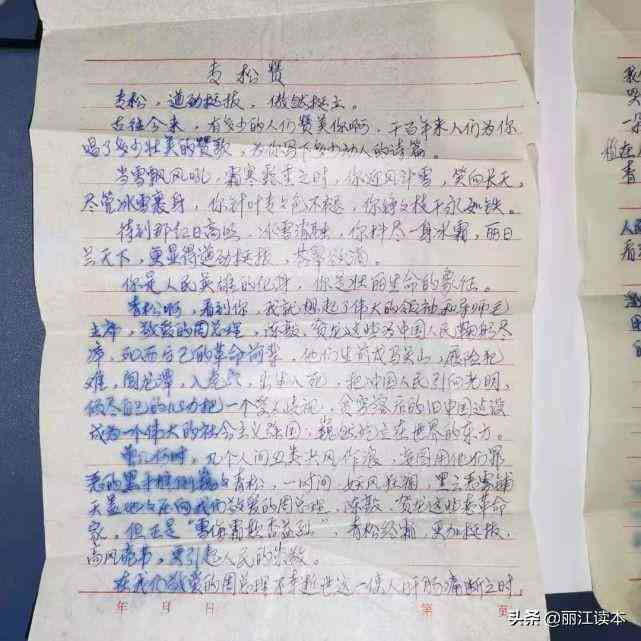 青松赞
青松，遒劲挺拔，傲然挺立。
古往今来，有多少的人们赞美你啊，千百年来人们为你
唱了多少壮美的赞歌，为你写下多少动人的诗篇。
当雪飘风吼，霜寒露重之时，你迎风斗雪，笑向长天。
尽管冰雪裹身，你针叶青色不褪，你铮枝干永如铁。
待到那红日高照，冰雪消融，你抖尽一身水霜，丽日
兰天下，更显得遒劲挺拔，苍翠
你是人民英雄的化身，你是壮丽生命的象征。
青松啊，看到你，我就想起了伟大的领袖和导师毛
主席，敬爱的周总理，陈毅，贺龙这些为中国人民鞠躬尽
瘁，死而后已的革命前辈，他们生前戎马关山，历险犯
难，闯龙潭，入虎穴，出生入死，把中国人民引向光明，
倾尽自己的心力把一个受人歧视，贫穷落后的旧中国建设
成为一个伟大的社会主义强国，巍然屹立在世界的东方。
曾几何时，几个人间丑类兴风作浪，妄图用他们罪
恶的黑手摧倒青松，一时间，妖风狂烟，黑云毒雪铺
天盖地在向我们敬爱的周总理，陈毅、贺龙这些老革命
家，但正是“雪侮霜欺香益烈”，青松经霜，更加挺拔，
高风亮节，更引起人民的崇敬。
在我们敬爱的周总理不幸逝世这一使人肝肠痛断之时，
年 月 日 第 页
头条 @丽江读本